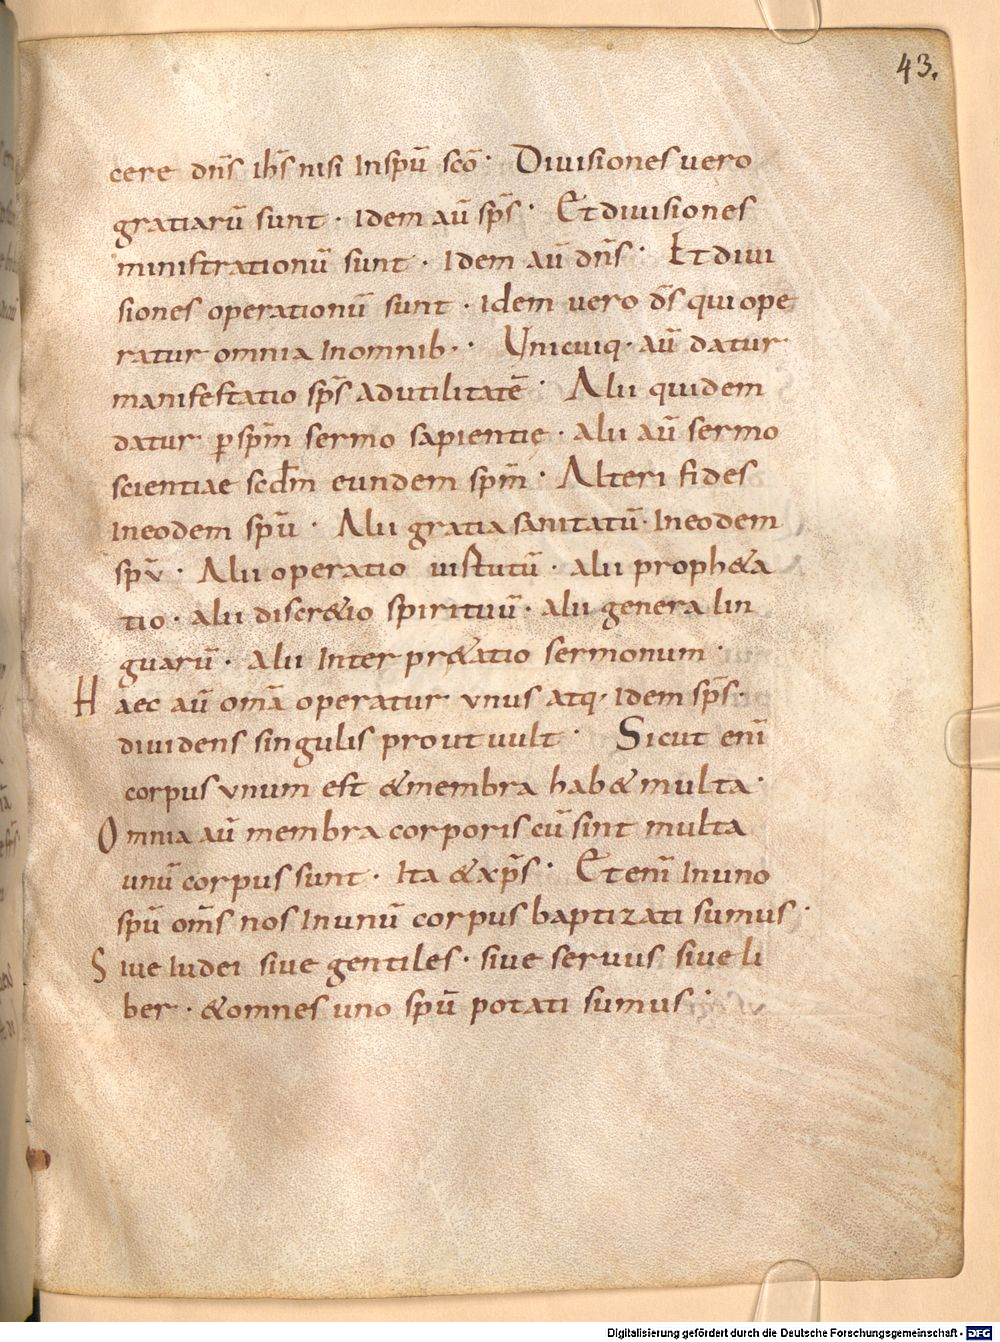 43.
cere dn̄s ih̄s nisi Inspū scō· Diuisiones uero
gratiarū sunt · Idem aū sp̄s · Et diuisiones
ministrationū sunt · Idem aū dn̄s · Et diui
siones operationū sunt · Idem uero d̄s qui ope
ratur omnia Inomnib· · Unicuiq· aū datur
manifestatio sp̄s adutilitatē · Alii quidem
datur ꝑ sp̄m sermo sapientię · alii aū sermo
scientiae scd̄m eundem sp̄m · Alteri fides
Ineodem spū · Alii gratia sanitatū· Ineodem
spū · Alii operatio uirtutū · alii proph&a
tio · alii discr&io spirituū · alii genera lin
guarū · alii Inter pr&atio sermonum ·
Haec aū om̄a operatur unus atq· Idem sp̄s·
diuidens singulis prout uult · Sicut enī
corpus unum est &membra hab& multa ·
Omnia aū membra corporis cū sint multa
unū corpus sunt · Ita &xp̄s · Et enī Inuno
spū om̄s nos Inunū corpus baptizati sumus ·
Siue Iudei siue gentiles · siue seruus siue li
ber · &omnes uno spū potati sumus ·
Digitalisierung gefördert durch die Deutsche Forschungsgemeinschaft - DFG